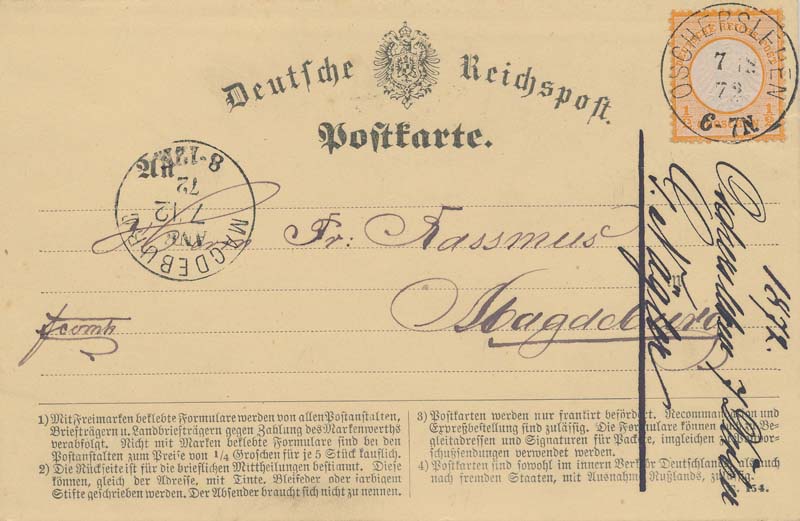 Deutsche Reichspost.
Postkarte.
OSCHERSLEBEN
7 12
72
6-7N
1/2
1/2
MAGDEBURG
7 12
72
8-12N
An
Herrn Fr: Rassmus
in
Magdeburg
fcomb
1872.
1) Mit Freimarken beklebte Formulare werden von allen Postanstalten,
Briefträgern u. Landbriefträgern gegen Zahlung des Markenwerths
verabfolgt. Nicht mit Marken beklebte Formulare sind bei den
Postanstalten zum Preise von 1/4 Groschen für je 5 Stück käuflich.
2) Die Rückseite ist für die brieflichen Mittheilungen bestimmt. Diese
können, gleich der Adresse, mit Tinte, Bleifeder oder farbigem
Stifte geschrieben werden. Der Absender braucht sich nicht zu nennen.
3) Postkarten werden nur frankirt befördert. Recommandation und
Expreßbestellung sind zulässig. Die Formulare können auch zu Be-
gleitadressen und Signaturen für Packete, imgleichen zu Postvor-
schußsendungen verwendet werden.
4) Postkarten sind sowohl im innern Verkehr Deutschlands, als auch
nach fremden Staaten, mit Ausnahme Rußlands, zulässig.
C. 154.